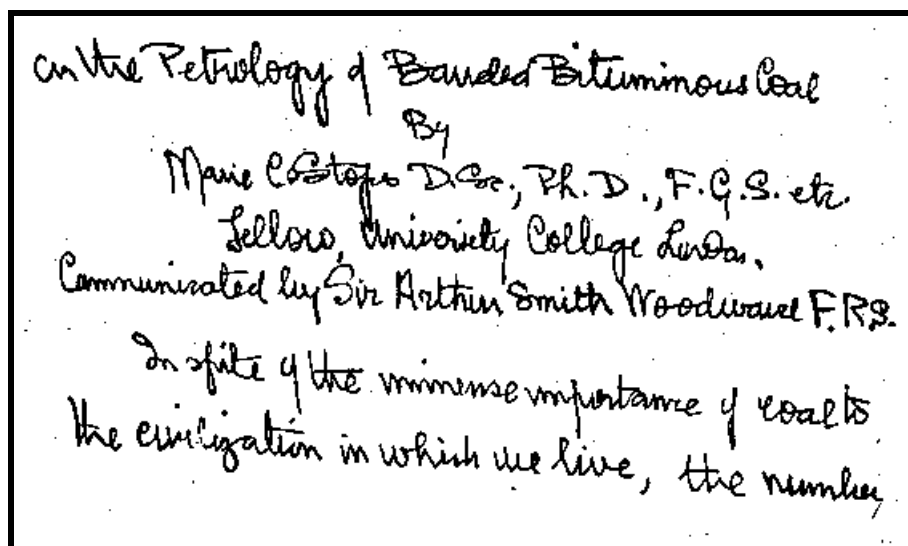 On the Petrology of Banded Bituminous Coal
By
Marie C Stopes D.Sc., Ph.D., F.G.S. etc.
Fellow, University College London.
Communicated by Sir Arthur Smith Woodward F.R.S.
In spite of the immense importance of coal to
the civilization in which we live, the number,